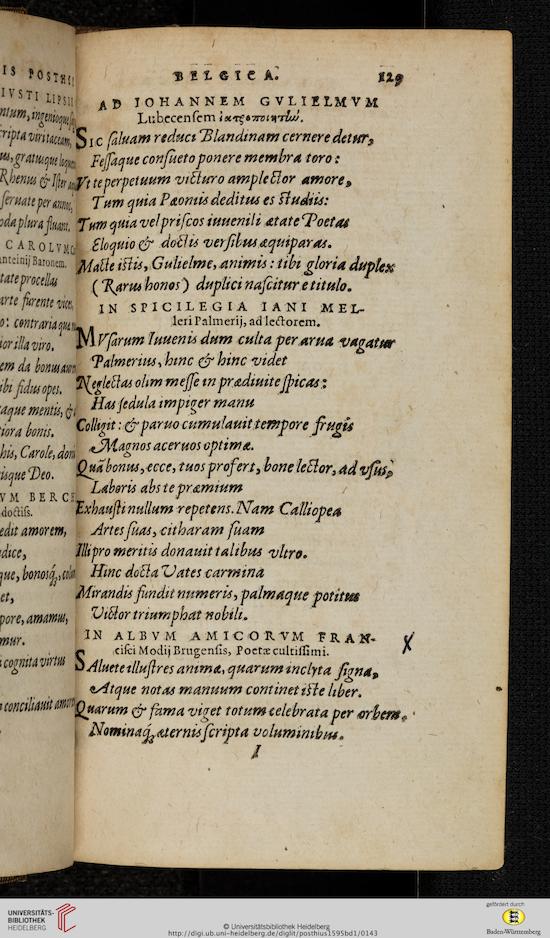 IS POSTHII
IVSTI LIPSII
ntum, ingenioque
cripta viri taceam,
us, gratuque
Rhenus & Ister
seruate per annos,
oda plura fluant.
CAROLVM
anteinij Baronem.
tate procellas
arte furente vices,
o: contraria
ior illa viro.
em da bonus
ibi fidus opes.
aque mentis, &
tiora bonis.
his, Carole,
isque Deo.
VM BERCE
doctiss.
edit amorem,
dice,
que, bonosq́;
et,
pore, amamus,
mur.
i cognita virtus
conciliauit
BELGICA. 129
AD IOHANNEM GVLIELMVM
Lubecensem ἰατροποιητὴν.
SIC saluam reduci Blandinam cernere detur,
Fessaque consueto ponere membra toro:
Vt te perpetuum victuro amplector amore,
Tum quia Pæoniis deditus es studiis:
Tum quia vel priscos iuuenili ætate Poetas
Eloquio & doctis versibus æquiparas.
Macte istis, Gulielme, animis: tibi gloria duplex
(Rarus honos) duplici nascitur e titulo.
IN SPICILEGIA IANI MEL-
leri Palmerij, ad lectorem.
MVsarum Iuuenis dum culta per arua vagatur
Palmerius, hinc & hinc videt
Neglectas olim messe in prædiuite spicas:
Has sedula impiger manu
Colligit: & paruo cumulauit tempore frugis
Magnos aceruos optimæ.
Quã bonus, ecce, tuos profert, bone lector, ad vsus,
Laboris abs te præmium
Exhausti nullum repetens. Nam Calliopea
Artes suas, citharam suam
Illi pro meritis donauit talibus vltro.
Hinc docta Vates carmina
Mirandis fundit numeris, palmaque potitus
Victor triumphat nobili.
IN ALBVM AMICORVM FRAN-
cisci Modij Brugensis, Poetæ cultissimi.
SAluete illustres animæ, quarum inclyta signa,
Atque notas manuum continet iste liber.
Quarum & fama viget totum celebrata per orbem,
Nominaq́; æternis scripta voluminibus.
I
UNIVERSITÄTS-
BIBLIOTHEK
HEIDELBERG
© Universitätsbibliothek Heidelberg
http://digi.ub.uni-heidelberg.de/diglit/posthius1595bd1/0143
gefördert durch
Baden-Württemberg